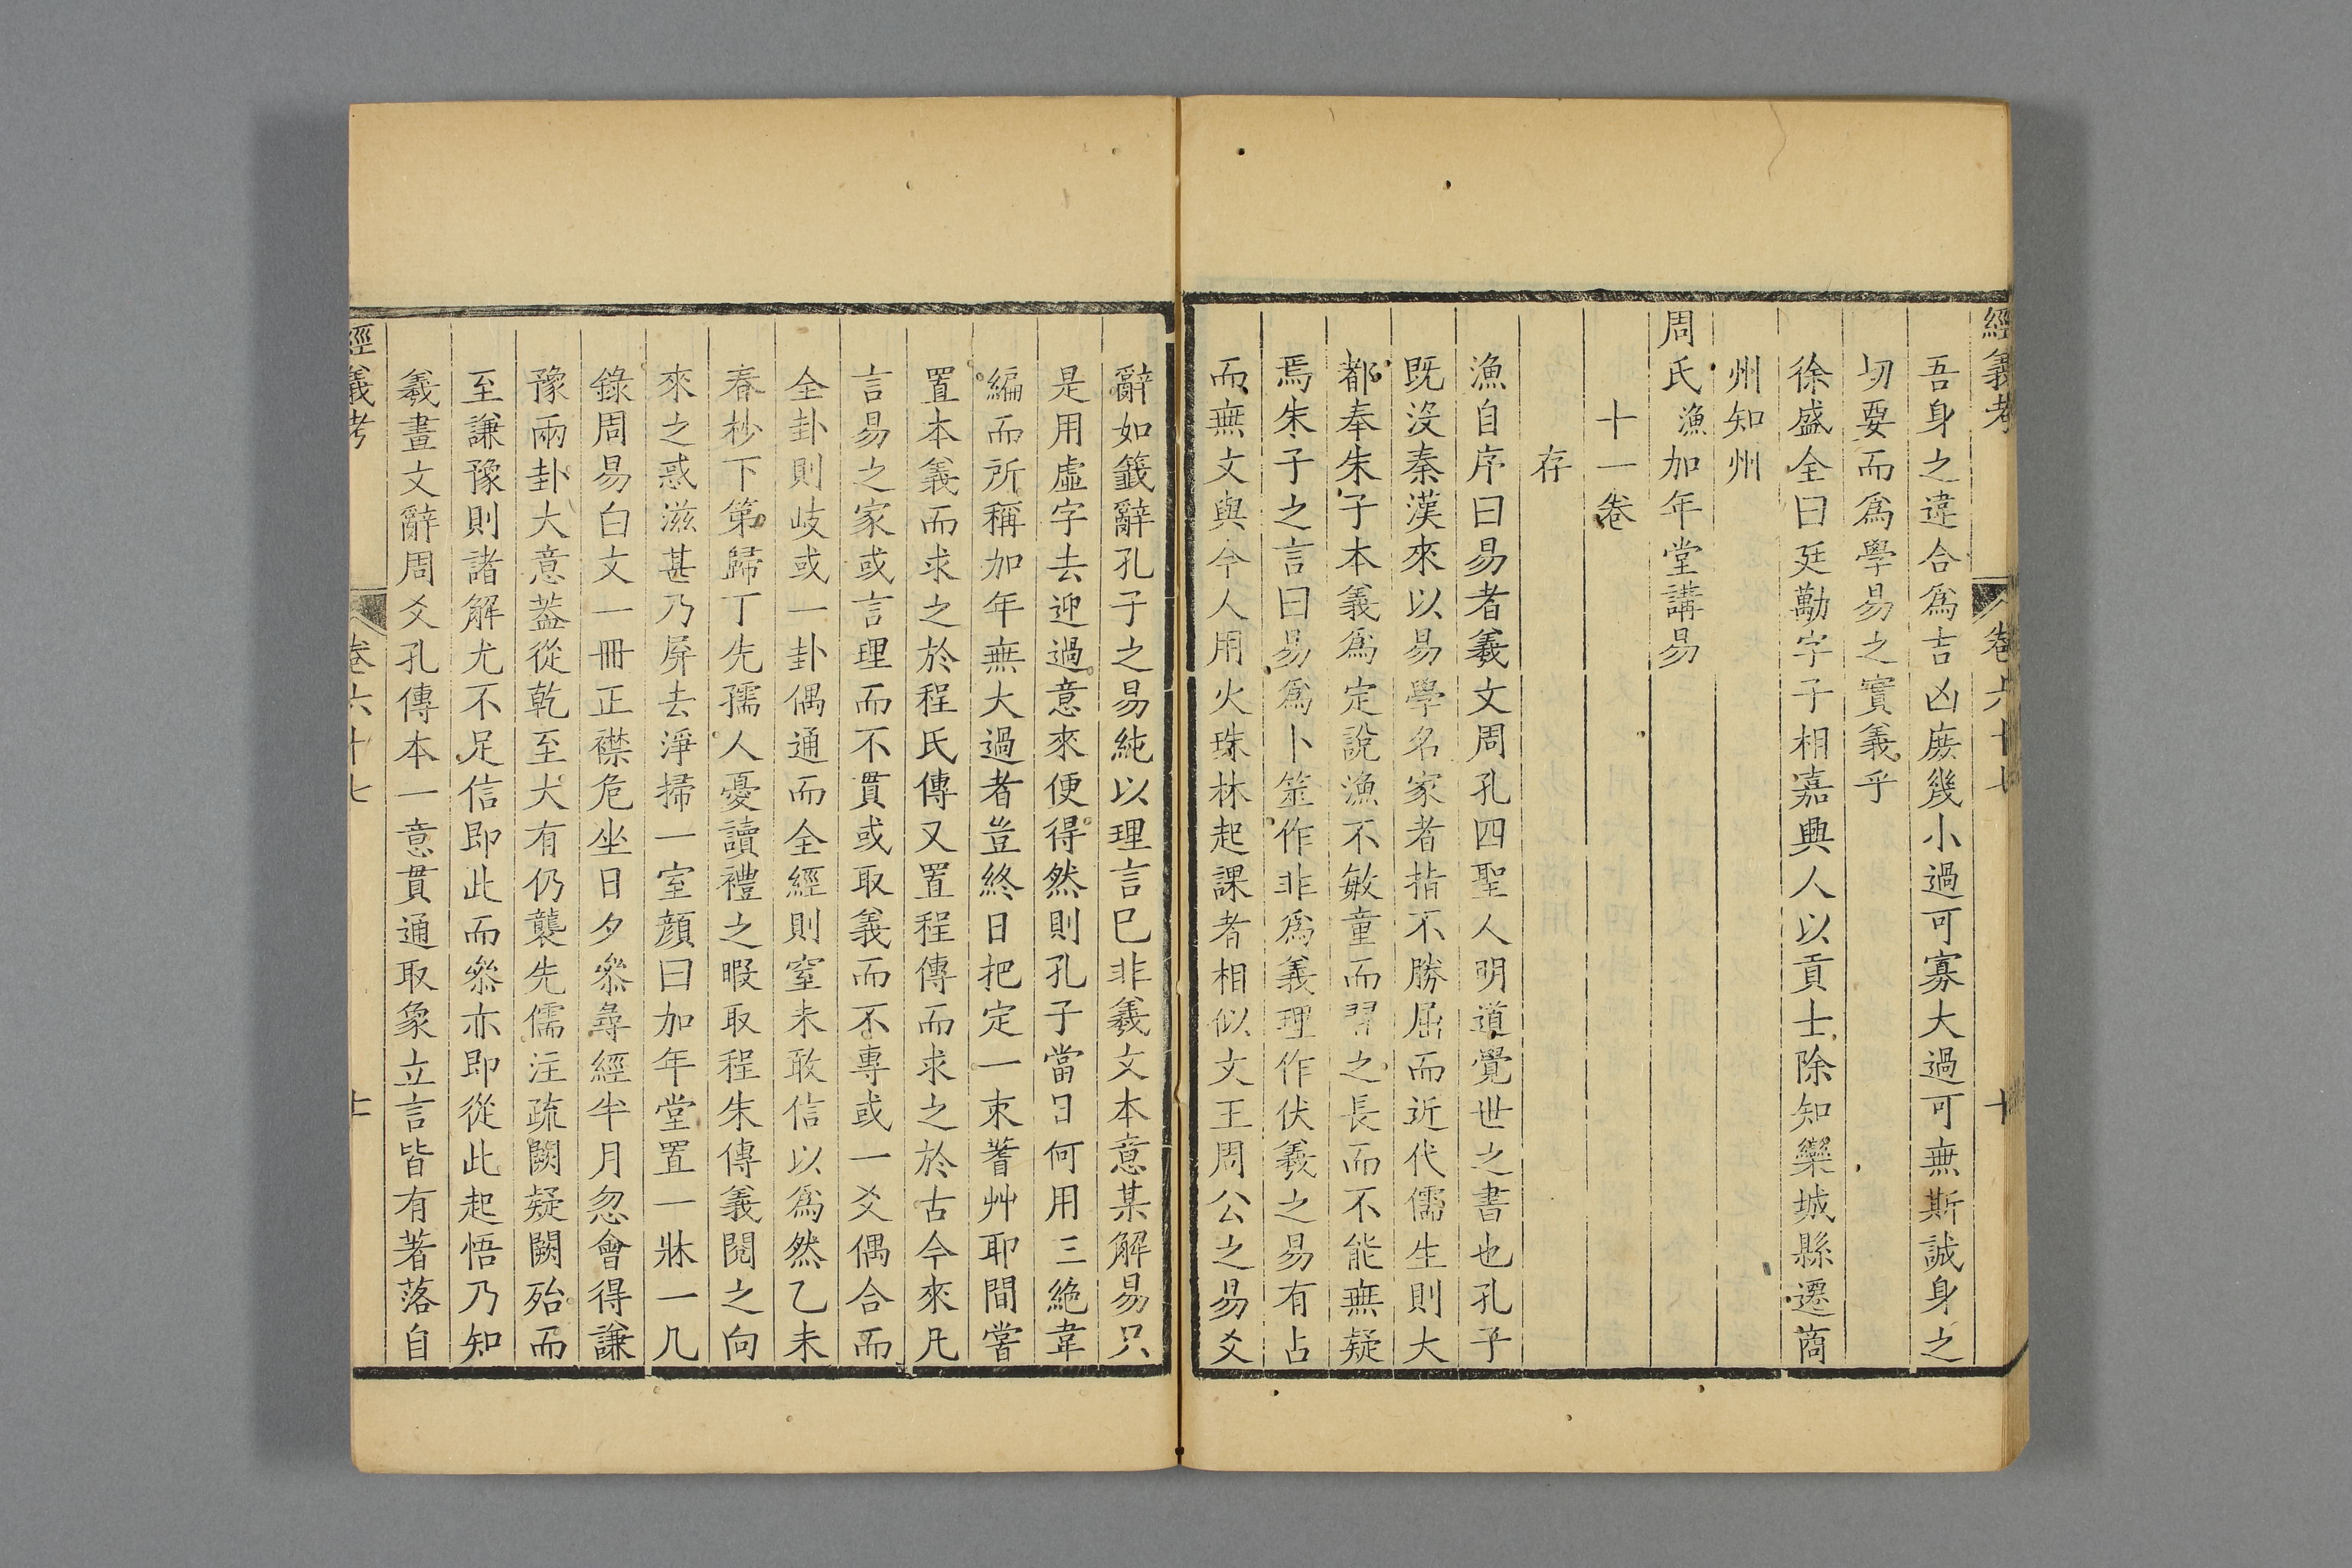 經義考
卷六十七
十
吾身之違合爲吉凶庻幾小過可寡大過可無斯誠身之
切要而爲學易之實義乎
徐盛全曰廷勱字子相嘉興人以貢士除知欒城縣遷商
州知州
周氏漁加年堂講易
十一卷
存
漁自序曰易者羲文周孔四聖人明道覺世之書也孔子
既沒秦漢來以易學名家者指不勝屈而近代儒生則大
都奉朱子本義爲定說漁不敏童而習之長而不能無疑
焉朱子之言曰易爲卜筮作非爲義理作伏羲之易有占
而無文與今人用火珠林起課者相似文王周公之易爻
辭如籤辭孔子之易純以理言已非羲文本意某解易只
是用虛字去迎過意來便得然則孔子當日何用三絶韋
編而所稱加年無大過者豈終日把定一束蓍艸耶間嘗
置本義而求之於程氏傳又置程傳而求之於古今來凡
言易之家或言理而不貫或取義而不專或一爻偶合而
全卦則岐或一卦偶通而全經則窒未敢信以爲然乙未
春杪下第歸丁先孺人憂讀禮之暇取程朱傳義閱之向
來之惑滋甚乃屏去淨掃一室顔曰加年堂置一牀一几
錄周易白文一冊正襟危坐日夕叅尋經半月忽會得謙
豫兩卦大意葢從乾至大有仍襲先儒注疏闕疑闕殆而
至謙豫則諸解尤不足信即此而叅亦即從此起悟乃知
羲畫文辭周爻孔傳本一意貫通取象立言皆有著落自
經義考
卷六十七
十